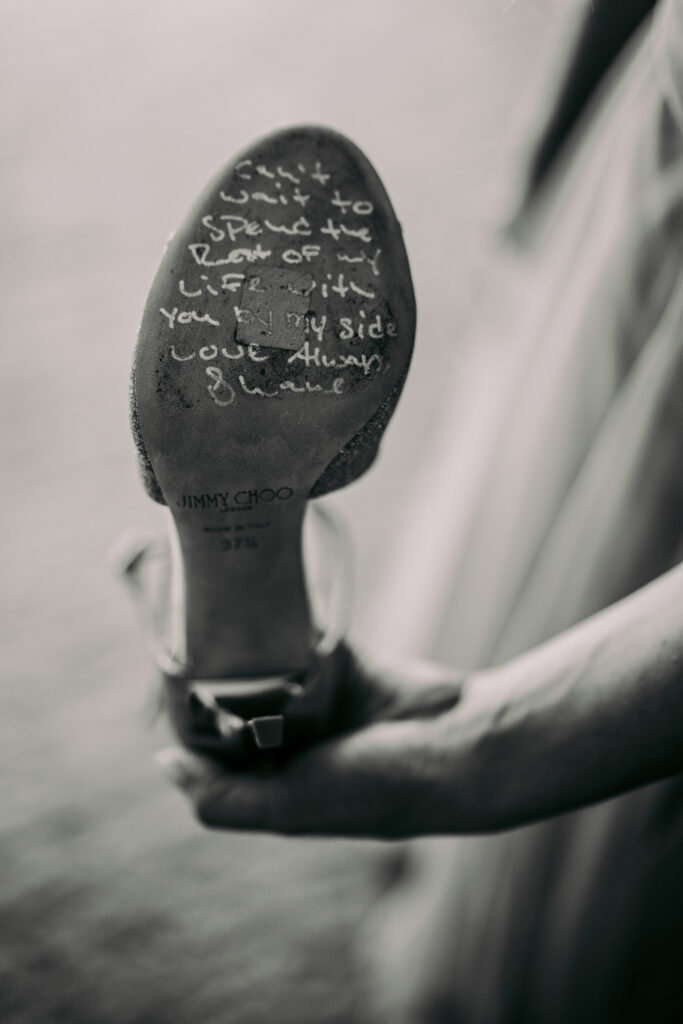 Can't
wait to
Spend the
Rest of my
Life with
You by my side
Love Always
Shane
JIMMY CHOO
LONDON
MADE IN ITALY
37½